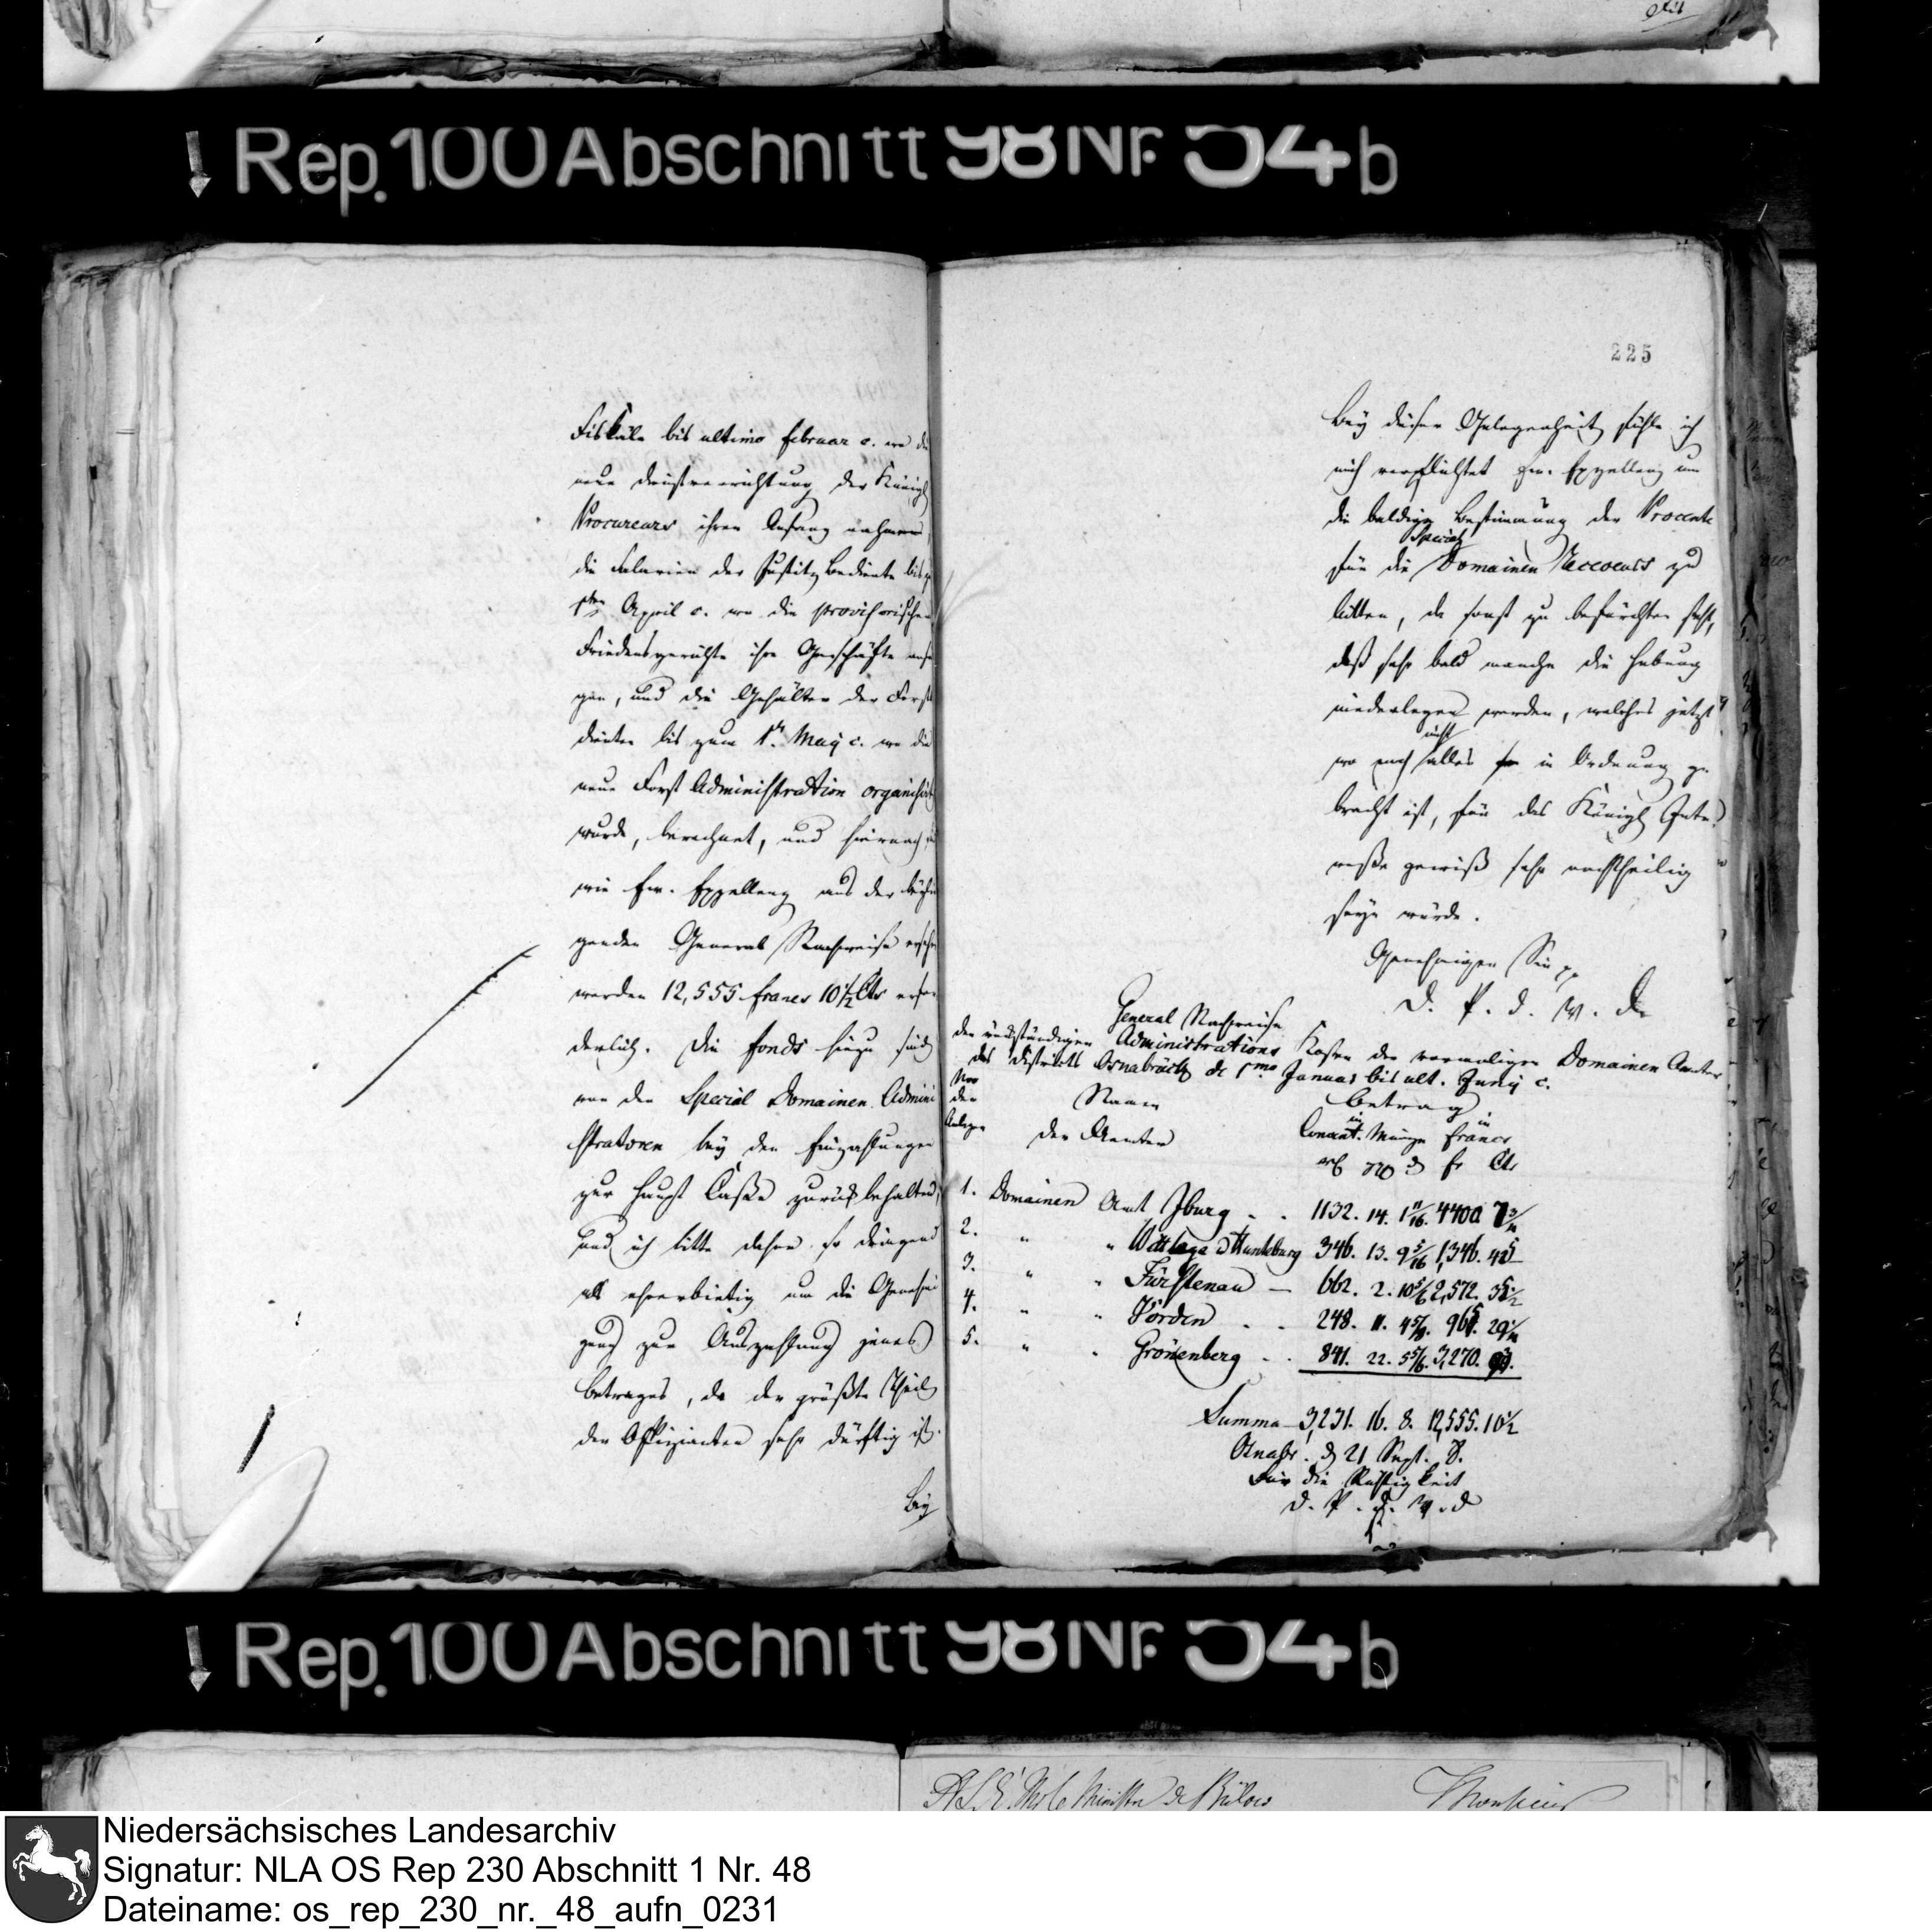 Rep. 100 Abschnitt 98 Nr. 54 b
225
Fiskäle bis ultimo februar c. wo die
neue Dienstverrichtung der Königl
Procureurs ihren Anfang nahmen,
die Salarien der Justitz Bediente bis z
1ten April c. wo die provisorischen
Friedensgerichte ihre Geschäfte anfin
gen, und die Gehälter der Forst
dienter bis zum 1t. May c. wo die
neue Forst Administration organisirt
wurde, berechnet, und hiernach
wie Ew. Exzellenz aus der
genden General Nachweise ersehen
werden 12,555 francs 10 1/2 Cts erfor
derlich. Die fonds hiezu sind
von den Special Domainen Admini
stratoren bey den Einzahlungen
zur Haupt Casse zurück behalten,
und ich bitte daher so dringend
als ehrerbietig um die Genehmi
gung zur Auszahlung jenes
Betrages, da der größte Theil
der Offizianten sehr dürftig ist.
Bey
Bey dieser Gelegenheit fühle ich
mich verpflichtet Ew. Exzellenz um
die baldige Bestimmung der Procente
Special
für die Domainen Receveurs zu
bitten, da sonst zu befürchten steht,
daß sehr bald manche die Hebung
niederlegen werden, welches jetzt
nicht
wo noch alles in Ordnung ge
bracht ist, für das Königl Inte
resse gewiß sehr nachtheilig
seyn würde.
Genehmigen Sie pp
D. P. d. W. D.
General Nachweise
der rückständigen Administrations Kosten der vormaligen Domainen Aemter
des Districts Osnabrück de 1mo Januar bis ult. Juny c.
Nro der Anlagen
Namen der Aemter
Betrag
in Convent. Münze in francs
fr Cts
1. Domainen Amt Iburg . . 1132. 14. 1 11/16. 4400
2. " " Wittlage & Hunteburg 346. 13. 9 5/16 1,346.
3. " " Fürstenau — 662. 2. 10 5/6 2,572.
4. " " Vörden . . 248. 11.
5. " " Grönenberg . . 841. 22. 5 5/6. 3,270.
Summa 3,231. 16. 8. 12,555. 10 1/2
Osnabr. d 21 Sept. 8.
Für die Richtigkeit
D. P. d. W. D
Rep. 100 Abschnitt 98 Nr. 54 b
Ministre de Bülow
Monsieur
Niedersächsisches Landesarchiv
Signatur: NLA OS Rep 230 Abschnitt 1 Nr. 48
Dateiname: os_rep_230_nr._48_aufn_0231